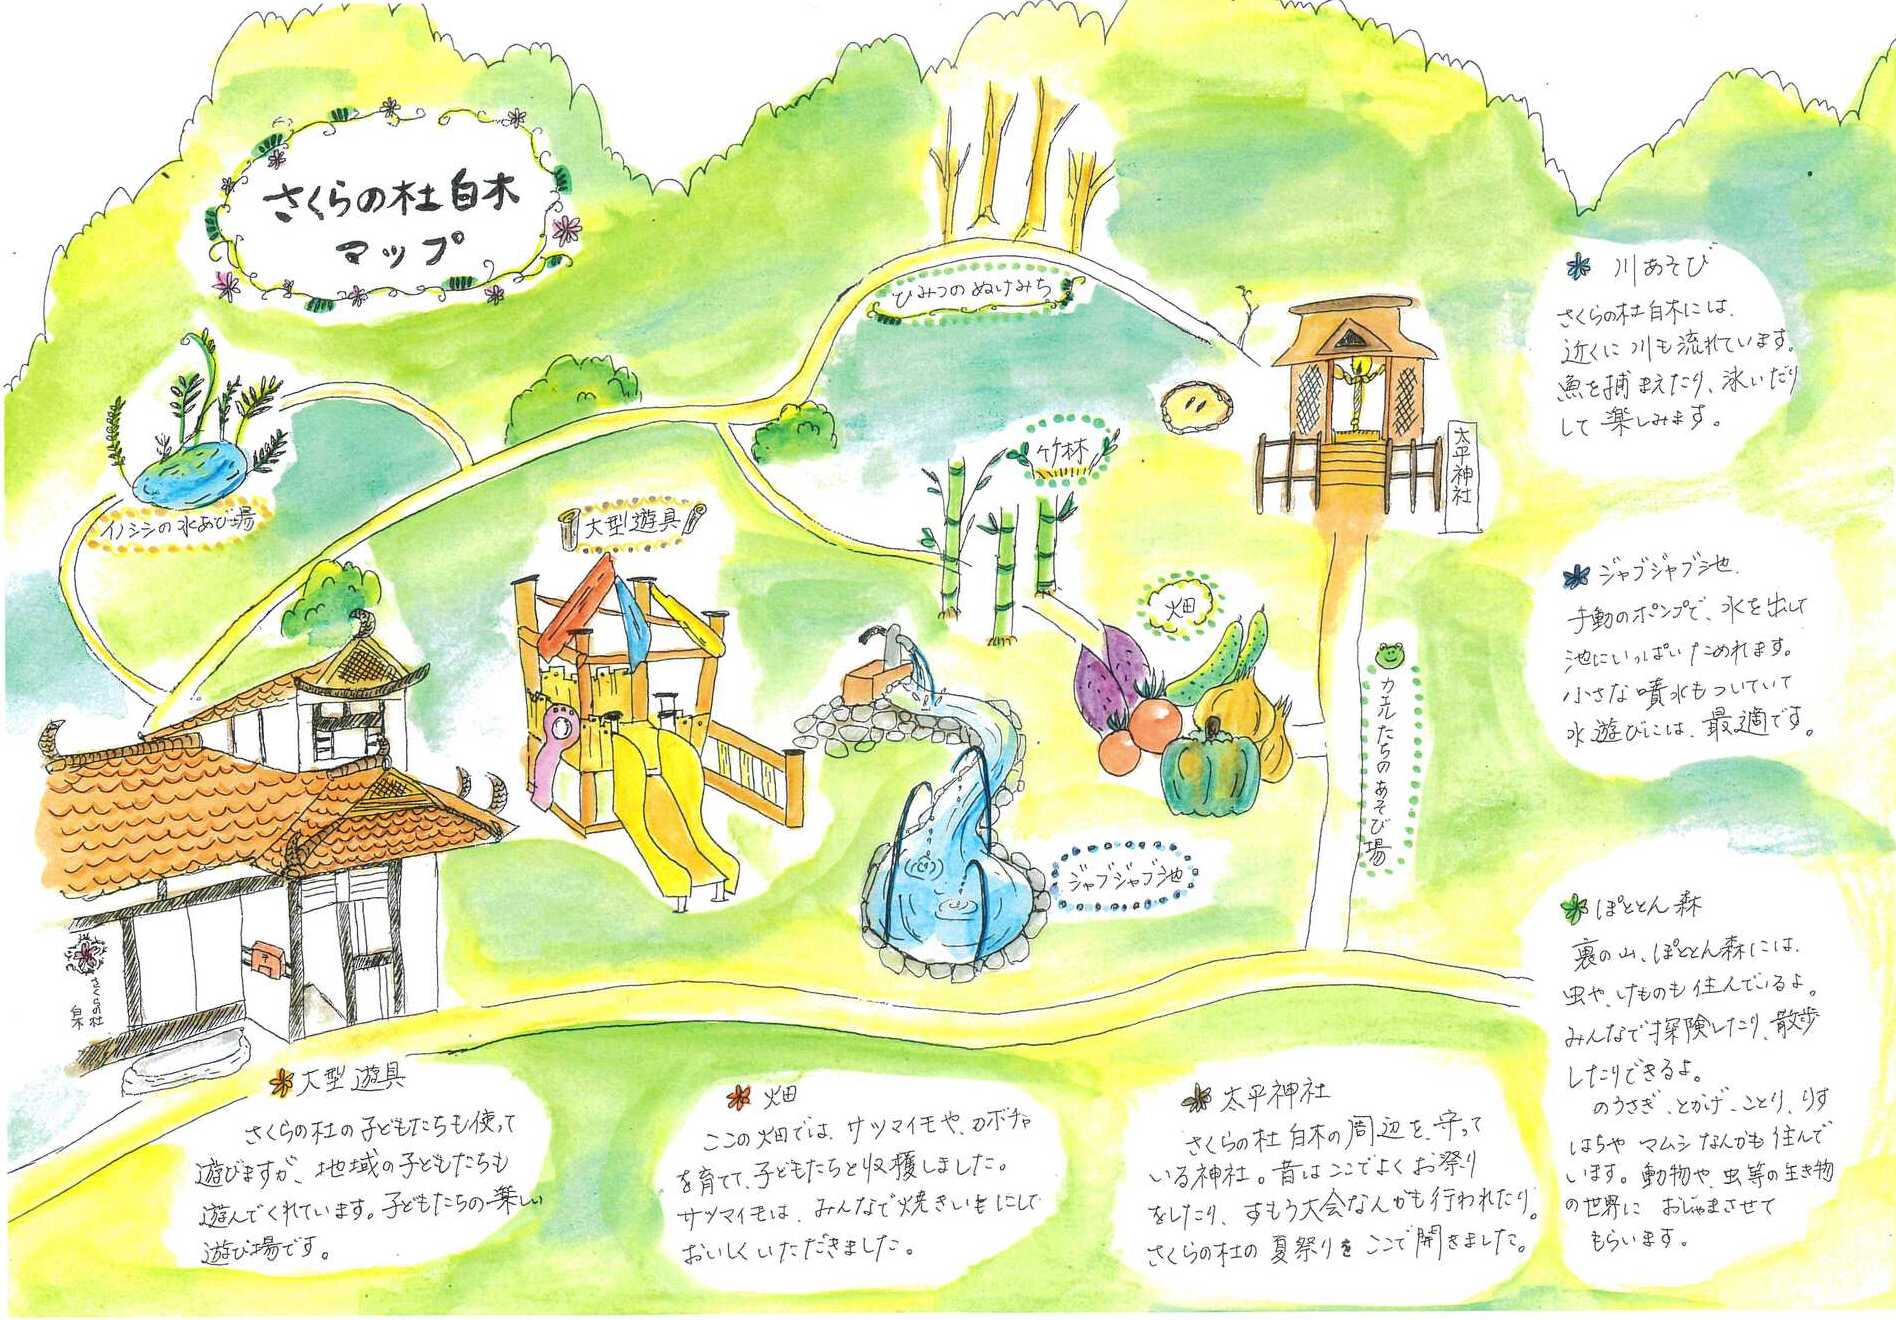 さくらの杜白木
マップ
ひみつのぬけみち
イノシシの水あび場
大型遊具
竹林
畑
太平神社
カエルたちのあそび場
ジャブジャブ池
さくらの杜
白木
川あそび
さくらの杜白木には、
近くに川も流れています。
魚を捕まえたり、泳いだり
して楽しみます。
ジャブジャブ池
手動のポンプで、水を出して
池にいっぱいためれます。
小さな噴水もついていて
水遊びには、最適です。
ぽととん森
裏の山、ぽととん森には、
虫や、けものも住んでいるよ。
みんなで探険したり、散歩
したりできるよ。
のうさぎ、とかげ、ことり、りす
はちやマムシなんかも住んで
います。動物や、虫等の生き物
の世界に おじゃまさせて
もらいます。
大型遊具
さくらの杜の子どもたちも使って
遊びますが、地域の子どもたちも
遊んでくれています。子どもたちの楽しい
遊び場です。
畑
ここの畑では、サツマイモや、カボチャ
を育てて、子どもたちと収穫しました。
サツマイモは、みんなで焼きいもにして
おいしくいただきました。
太平神社
さくらの杜白木の周辺を、守って
いる神社。昔はここでよくお祭り
をしたり、すもう大会なんかも行われたり。
さくらの杜の夏祭りをここで開きました。